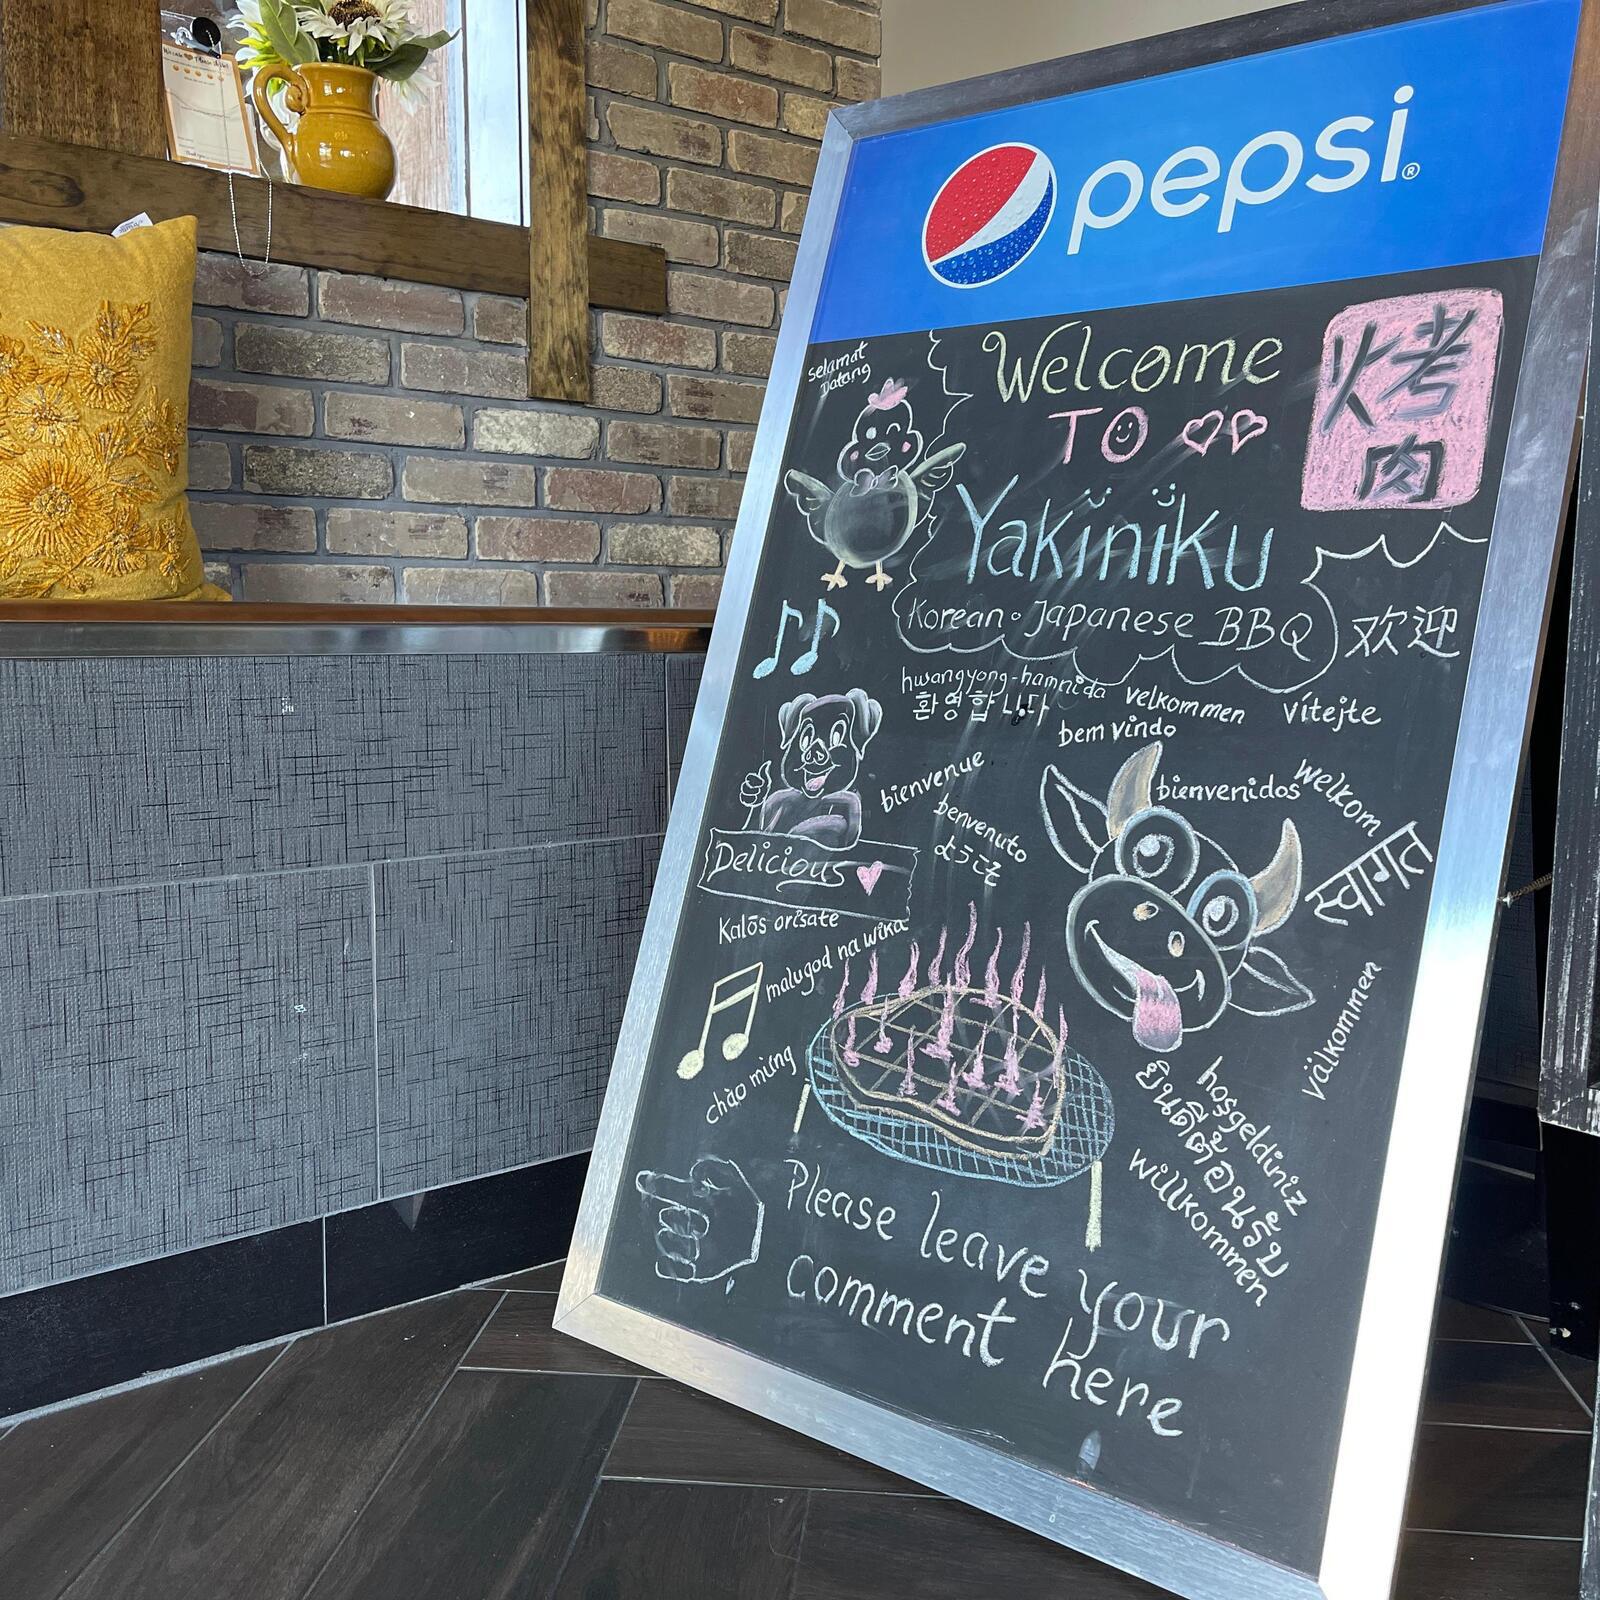 pepsi®
selamat
Datang
Welcome
TO
烤
肉
Yakiniku
Korean · Japanese BBQ
欢迎
hwangyong-hamnida
환영합니다
velkommen
vítejte
bem vindo
bienvenue
bienvenidos
welkom
benvenuto
ようこそ
स्वागत
Delicious
Kalós orísate
malugod na wika
välkommen
chào mừng
hoşgeldiniz
ยินดีต้อนรับ
willkommen
Please leave your
comment here